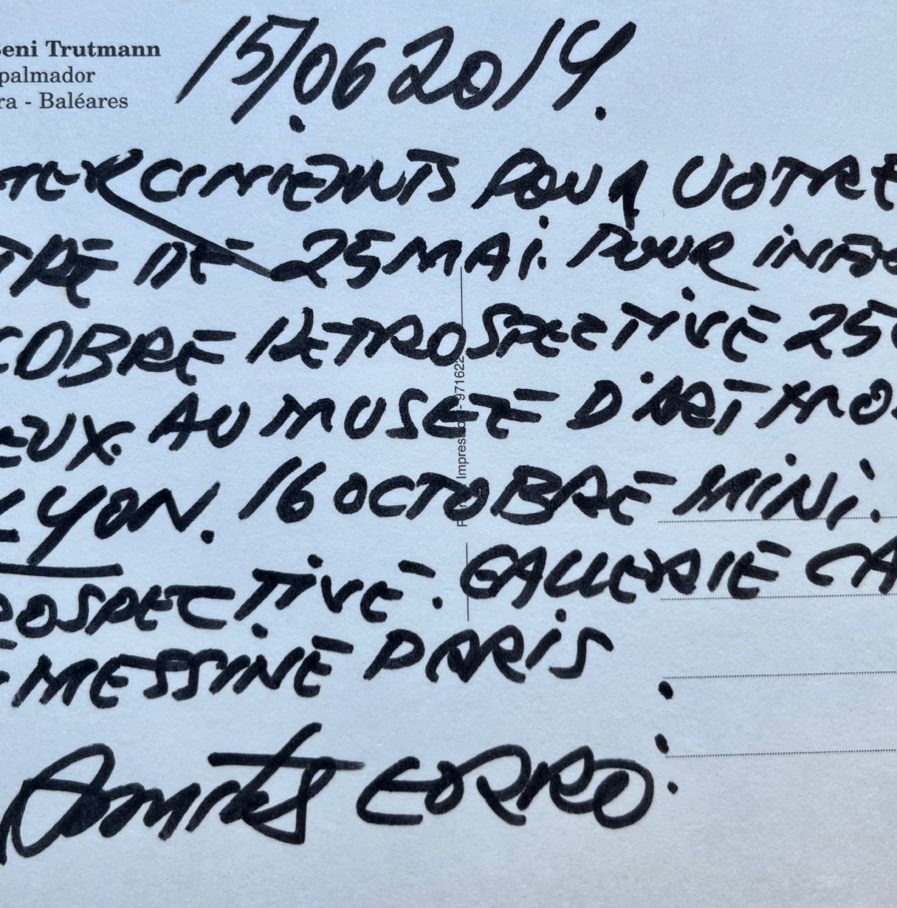 Beni Trutmann
palmador
ra - Baléares
15/06 2014.
MERCIMENTS POUR VOTRE
TRE DE 25 MAI. POUR INFO
COBRE RETROSPECTIVE 250
EUX. AU MUSEE D'ART MO
LYON. 16 OCTOBRE MINI.
ROSPECTIVE. GALLERIE CA
E MESSINE PARIS
Amitiés ERRO.
Impress - 971622